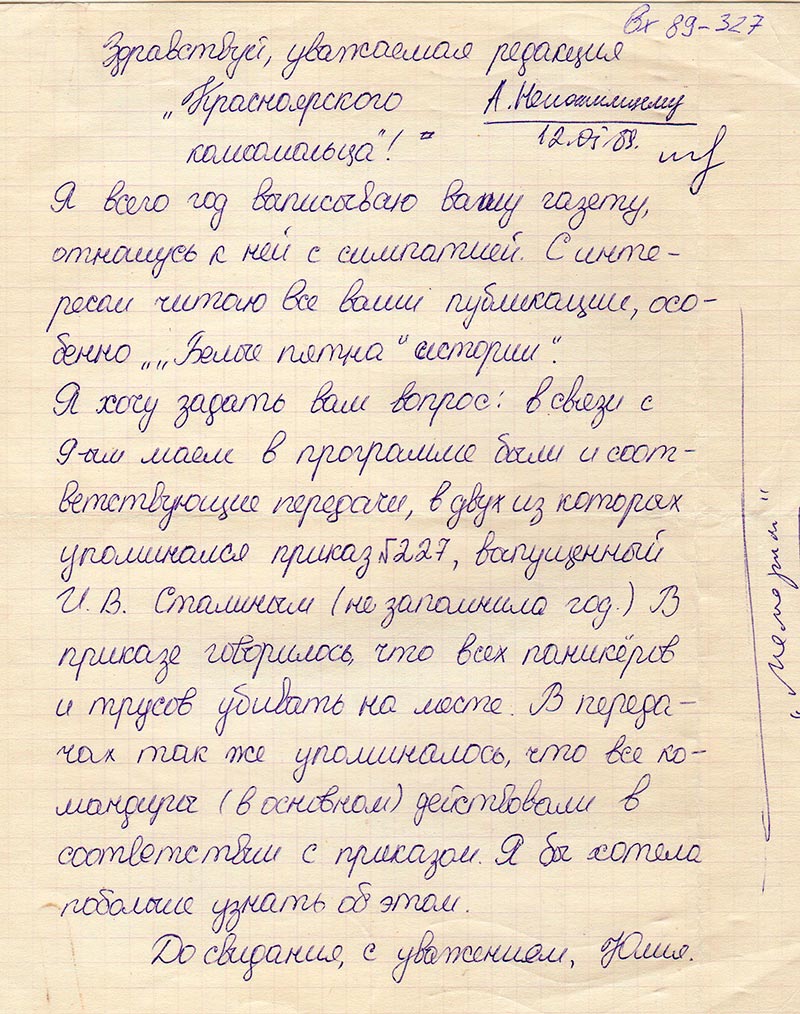 Вх 89-327
Здравствуй, уважаемая редакция
„Красноярского
комсомольца"!
А.
12.
Я всего год выписываю вашу газету,
отношусь к ней с симпатией. С инте-
ресом читаю все ваши публикации, осо-
бенно „„Белые пятна" истории".
Я хочу задать вам вопрос: в связи с
9-ым маем в программе были и соот-
ветствующие передачи, в двух из которых
упоминался приказ №227, выпущенный
И. В. Сталиным (не запомнила год.) В
приказе говорилось, что всех паникёров
и трусов убивать на месте. В переда-
чах так же упоминалось, что все ко-
мандиры (в основном) действовали в
соответствии с приказом. Я бы хотела
побольше узнать об этом.
До свидания, с уважением, Юлия.
„Мемориал"